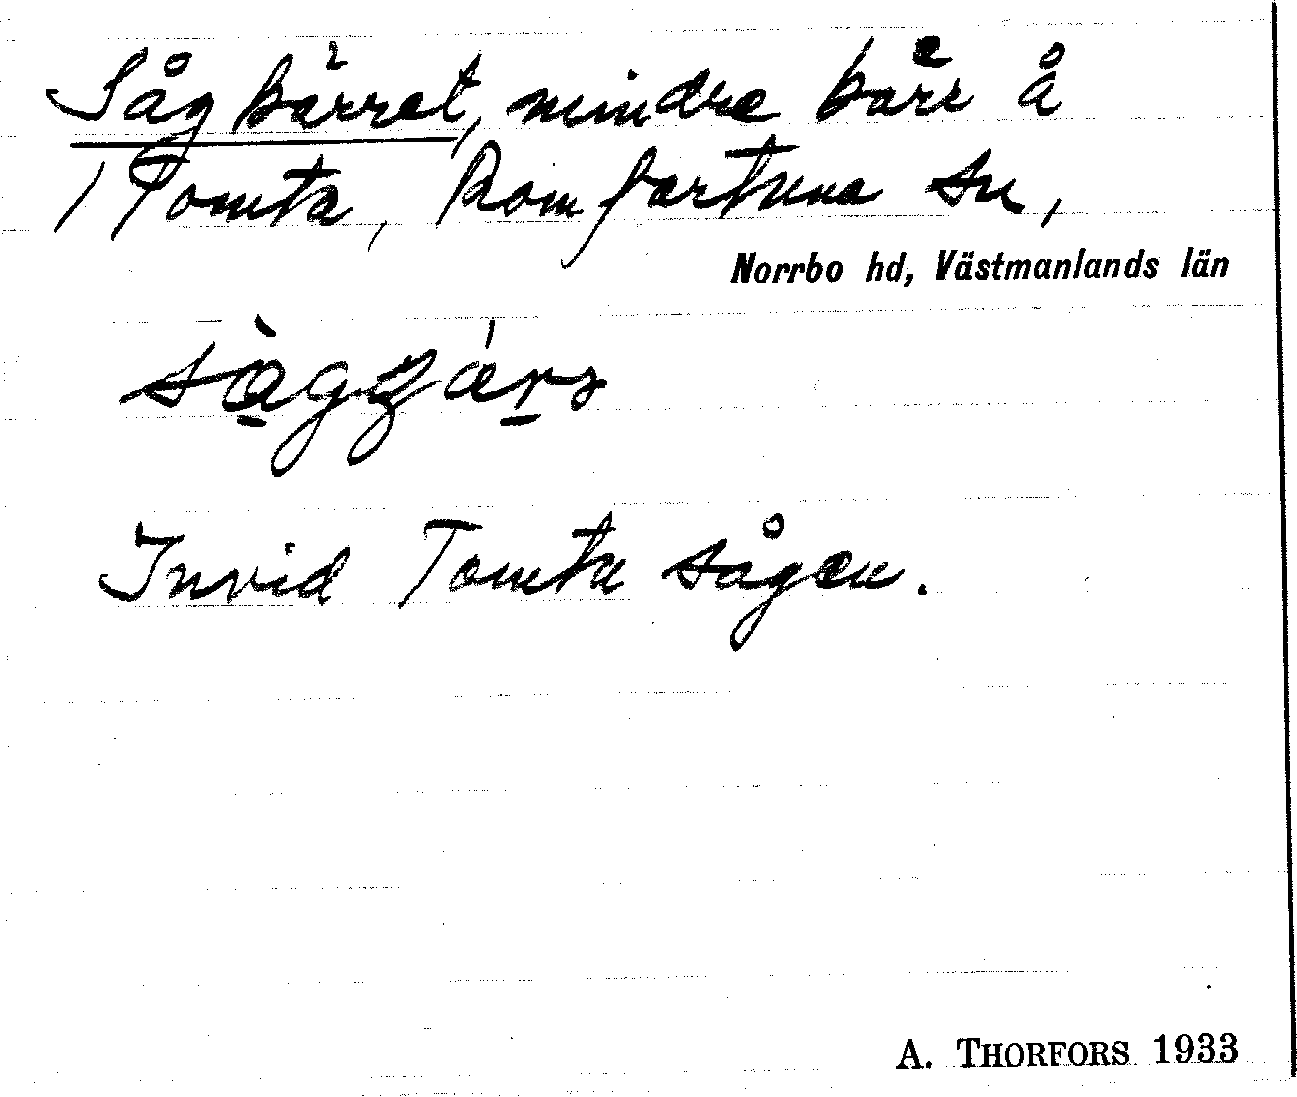 Sågkärret, mindre kärr å
1 Tomta, Romfartuna sn,
Norrbo hd, Västmanlands län
Invid Tomta sågen.
A. THORFORS 1933